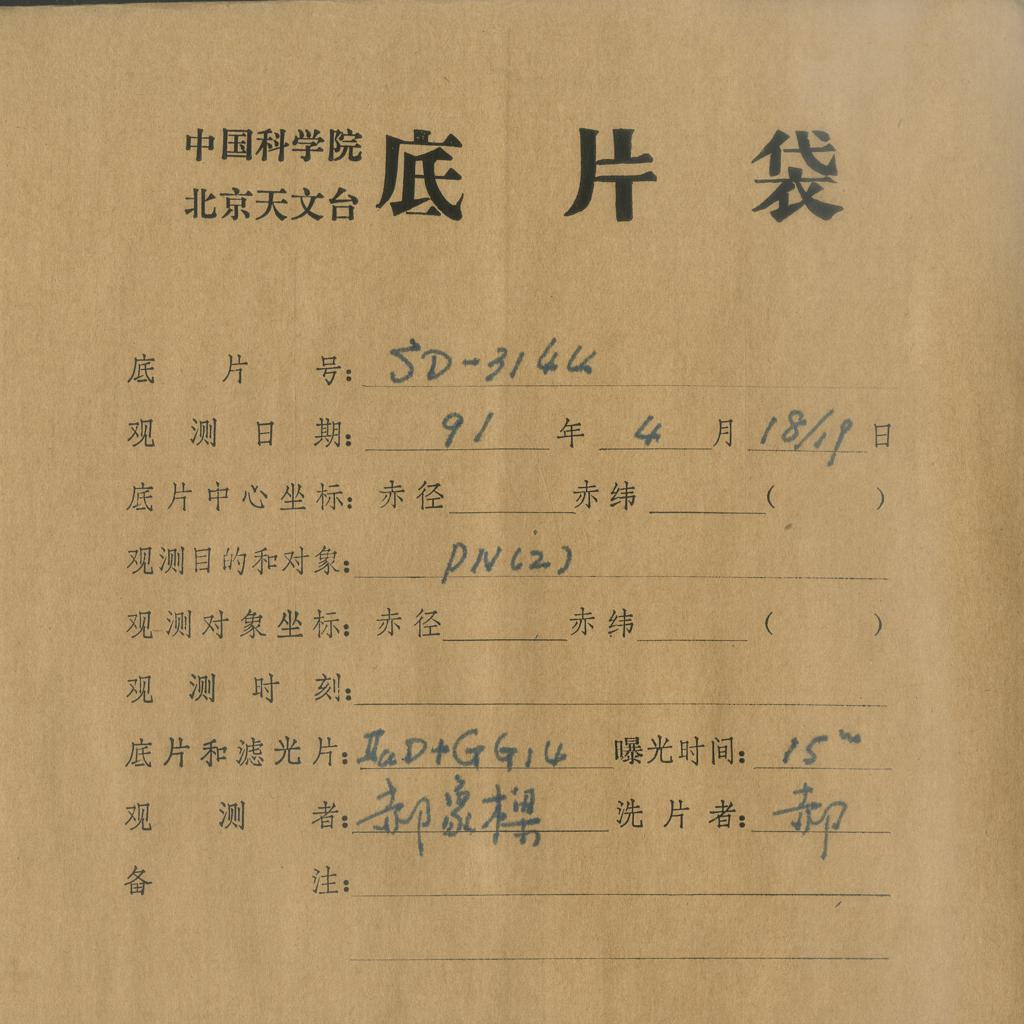 中国科学院
北京天文台
底片袋
底片号：SD-3144
观测日期：91年4月18/19日
底片中心坐标：赤径 赤纬 （ ）
观测目的和对象：PN(2)
观测对象坐标：赤径 赤纬 （ ）
观测时刻：
底片和滤光片：IIaD+GG14 曝光时间：15m
观测者：郝象樑 洗片者：郝
备注：